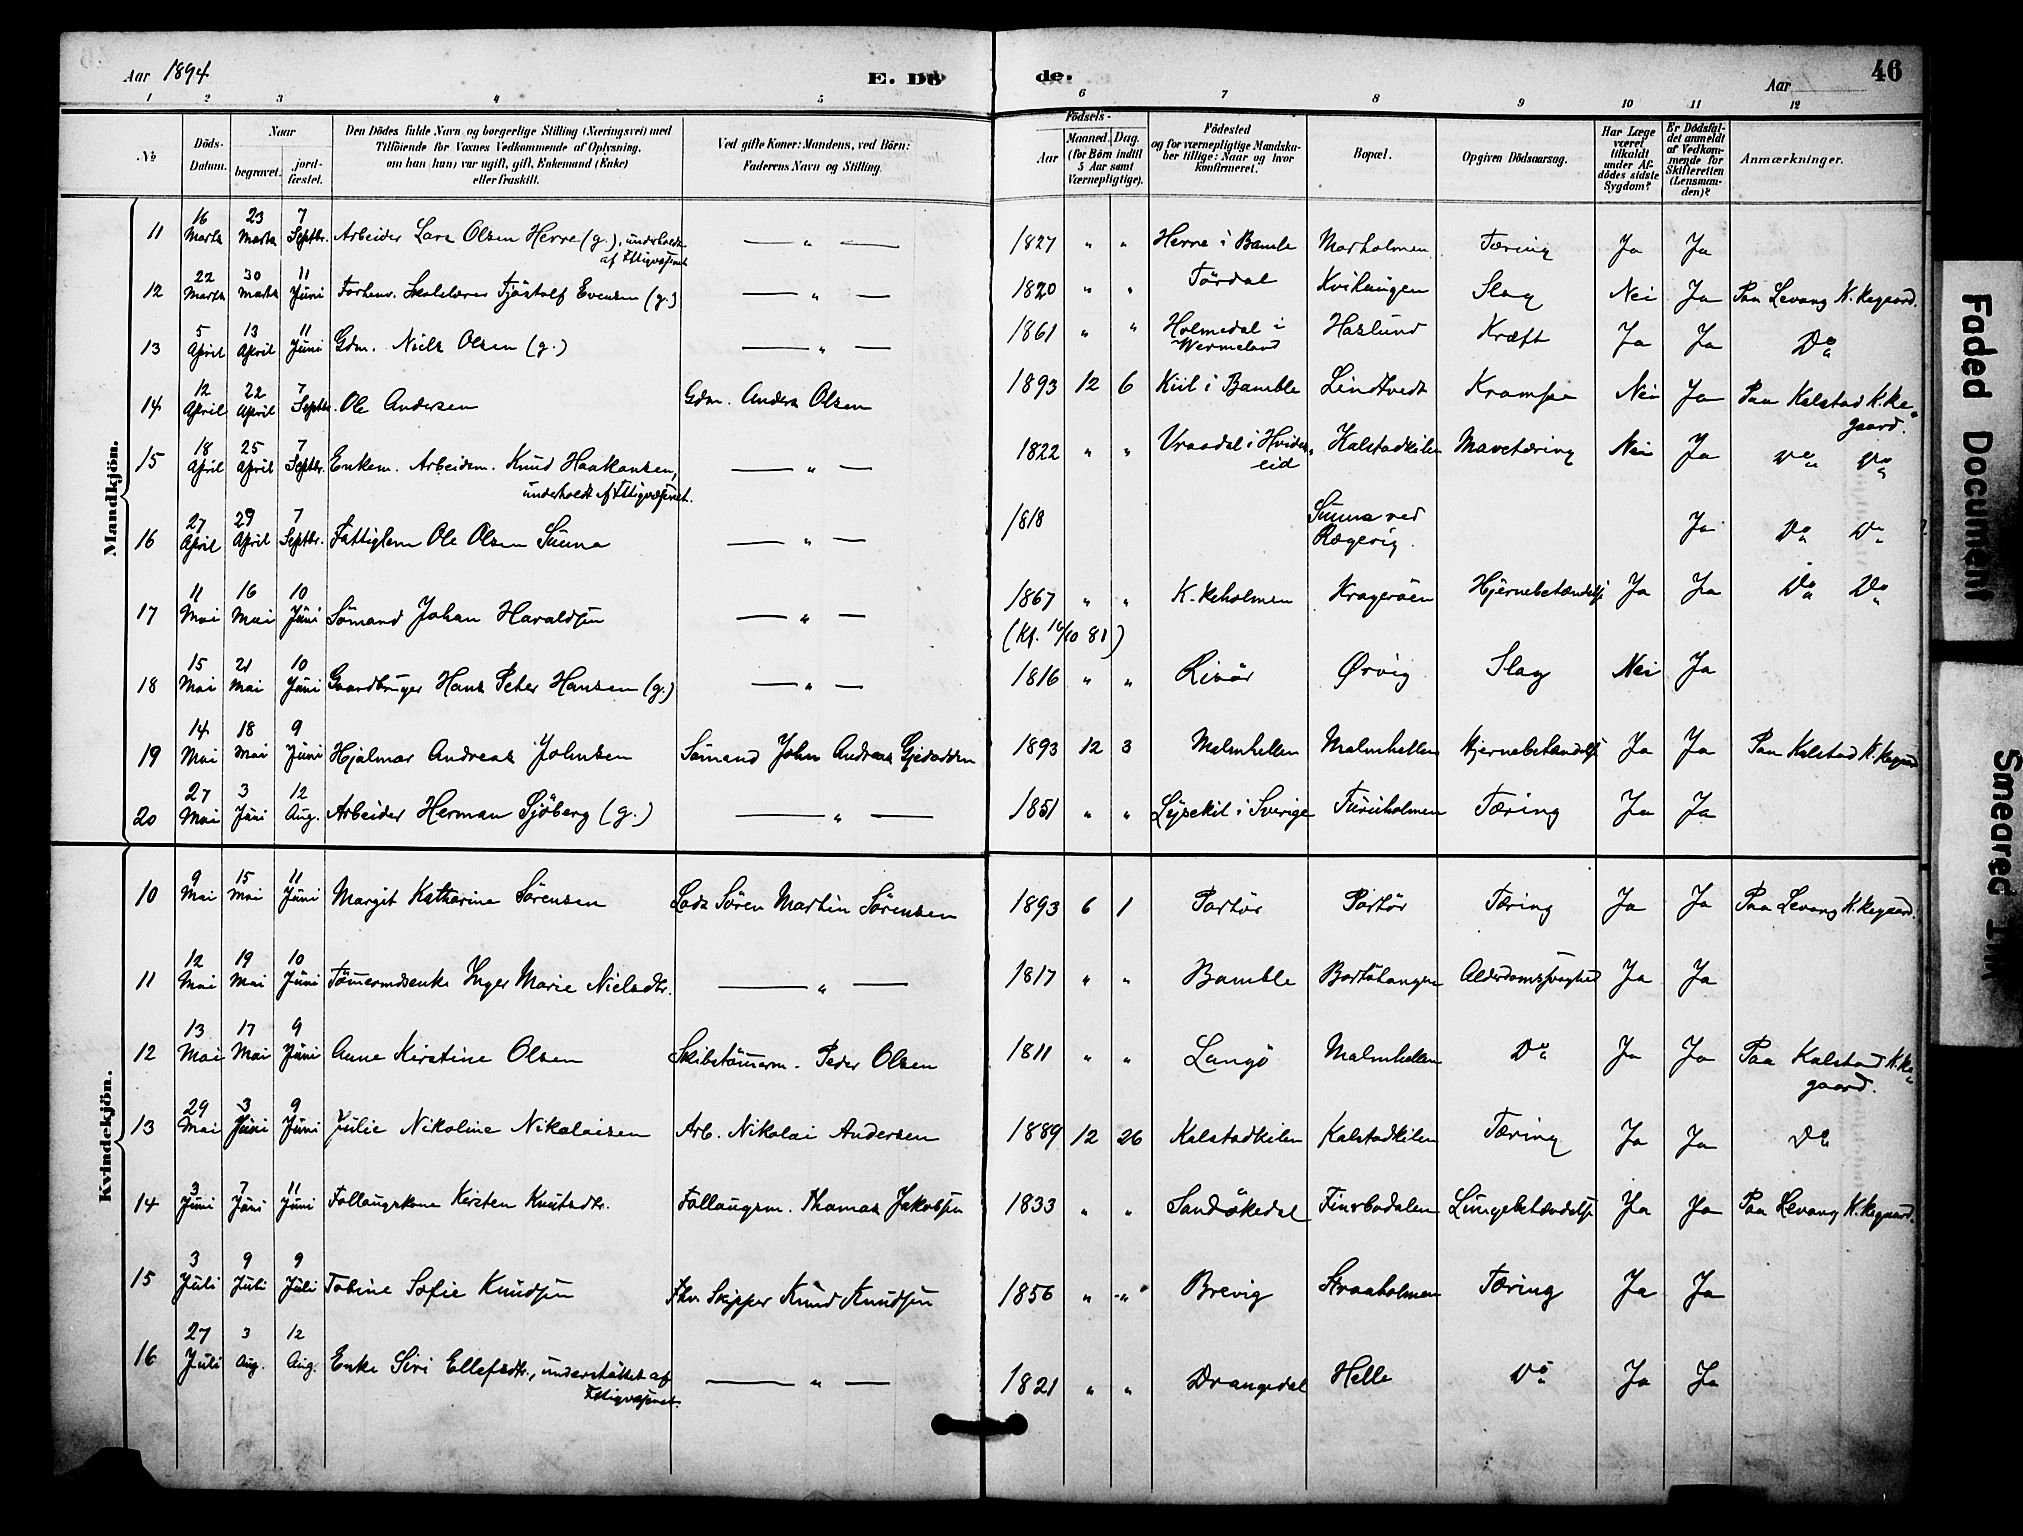 Aar 1894 E. Dö de. Aar 46
1 2 3 4 5 6 7 8 9 10 11 12
No. Döds-Datum. Naar begravet. jordfæstet. Den Dödes fulde Navn og borgerlige Stilling (Næringsvei) med Tilföiende for Voxnes Vedkommende af Oplysning, om han (hun) var ugift, gift, Enkemand (Enke) eller fraskilt. Ved gifte Koner: Mandens, ved Börn: Faderens Navn og Stilling. Födsels- Aar Maaned. Dag. (for Börn indtil 5 Aar samt Værnepligtige). Födested og for værnepligtige Mandskaber tillige: Naar og hvor konfirmeret. Bopæl. Opgiven Dödsaarsag. Har Læge været tilkaldt under Afdödes sidste Sygdom? Er Dödsfaldet anmeldt af Vedkommende for Skifteretten (Lensmanden)? Anmærkninger.
Mandkjön.
11 16 Marts 23 Marts 7 Septbr. Arbeider Lars Olsen Herre (g.), underholdt af Fttigvæsenet — " — 1827 " " Herre i Bamble Marholmen Tæring Ja Ja
12 22 Marts 30 Marts 11 Juni Forhenv. Skolelærer Tjöstolf Evensen (g.) — " — 1820 " " Tördal Kvihaugen Slag Nei Ja Paa Levang K.kegaard.
13 5 April 13 April 11 Juni Gdm. Niels Olsen (g.) — " — 1861 " " Holmedal i Wermeland Haslund Kræft Ja Ja Do
14 12 April 22 April 7 Septbr. Ole Andersen Gdm. Anders Olsen 1893 12 6 Kiil i Bamble Lindtvedt Krampe Nei Ja Paa Kalstad K.kegaard.
15 18 April 25 April 7 Septbr. Enkem. Arbeidsm. Knud Haakonsen, underholdt af Fttigvæsenet. — " — 1822 " " Vraadal i Hvideseid Kalstadkilen Mavetæring Nei Ja Do Do
16 27 April 29 April 7 Septbr. Fattiglem Ole Olsen Sunna — " — 1818 Sunna ved Rægevig. Ja Do Do
17 11 Mai 16 Mai 10 Juni Sömand Johan Haraldsen — " — 1867 " " K.keholmen Krageröen Hjernebetændelse Ja Ja Do Do
(Kf. 16/10 81)
18 15 Mai 21 Mai 10 Juni Gaardbruger Hans Peter Hansen (g.) — " — 1816 " " Risör Ørvig Slag Nei Ja
19 14 Mai 18 Mai 9 Juni Hjalmar Andreas Johnsen Sömand John Andreas Gjeraldsen 1893 12 3 Malmhellen Malmhellen Hjernebetændelse Ja Ja Paa Kalstad K.kegaard
20 27 Mai 3 Juni 12 Aug. Arbeider Herman Sjöberg (g.) — " — 1851 " " Lysekil i Sverige Furuholmen Tæring Ja Ja
Kvindekjön.
10 9 Mai 15 Mai 11 Juni Margit Katharina Sörensen Lods Sören Martin Sörensen 1893 6 1 Portör Portör Tæring Ja Ja Paa Levang K.kegaard.
11 12 Mai 19 Mai 10 Juni Tömermdsenke Inger Marie Nielsdtr. — " — 1817 " " Bamble Alderdomssvaghed Ja Ja
12 13 Mai 17 Mai 9 Juni Anne Kirstine Olsen Skibstömerm. Peder Olsen 1811 " " Langö Malmhellen Do Ja Ja Paa Kalstad K.kegaard.
13 29 Mai 3 Juni 9 Juni Julie Nikoline Nikolaisen Arb. Nikolai Andersen 1889 12 26 Kalstadkilen Kalstadkilen Tæring Ja Ja Do
14 3 Juni 7 Juni 11 Juni Follaugskone Kirsten Knutsdtr. Follaugsm. Thomas Jakobsen 1833 " " Sandökedal Finsbudalen Lungebetændelse Ja Ja Paa Levang K.kegaard.
15 3 Juli 9 Juli 9 Juli Tobine Sofie Knudsen Fhv. Skipper Knud Knudsen 1856 " " Brevig Straaholmen Tæring Ja Ja
16 27 Juli 3 Aug. 12 Aug. Enke Siri Ellefsdtr., understöttet af Fttigvæsenet. — " — 1821 " " Drangedal Helle Do Ja Ja
Faded Document
Smeared Ink